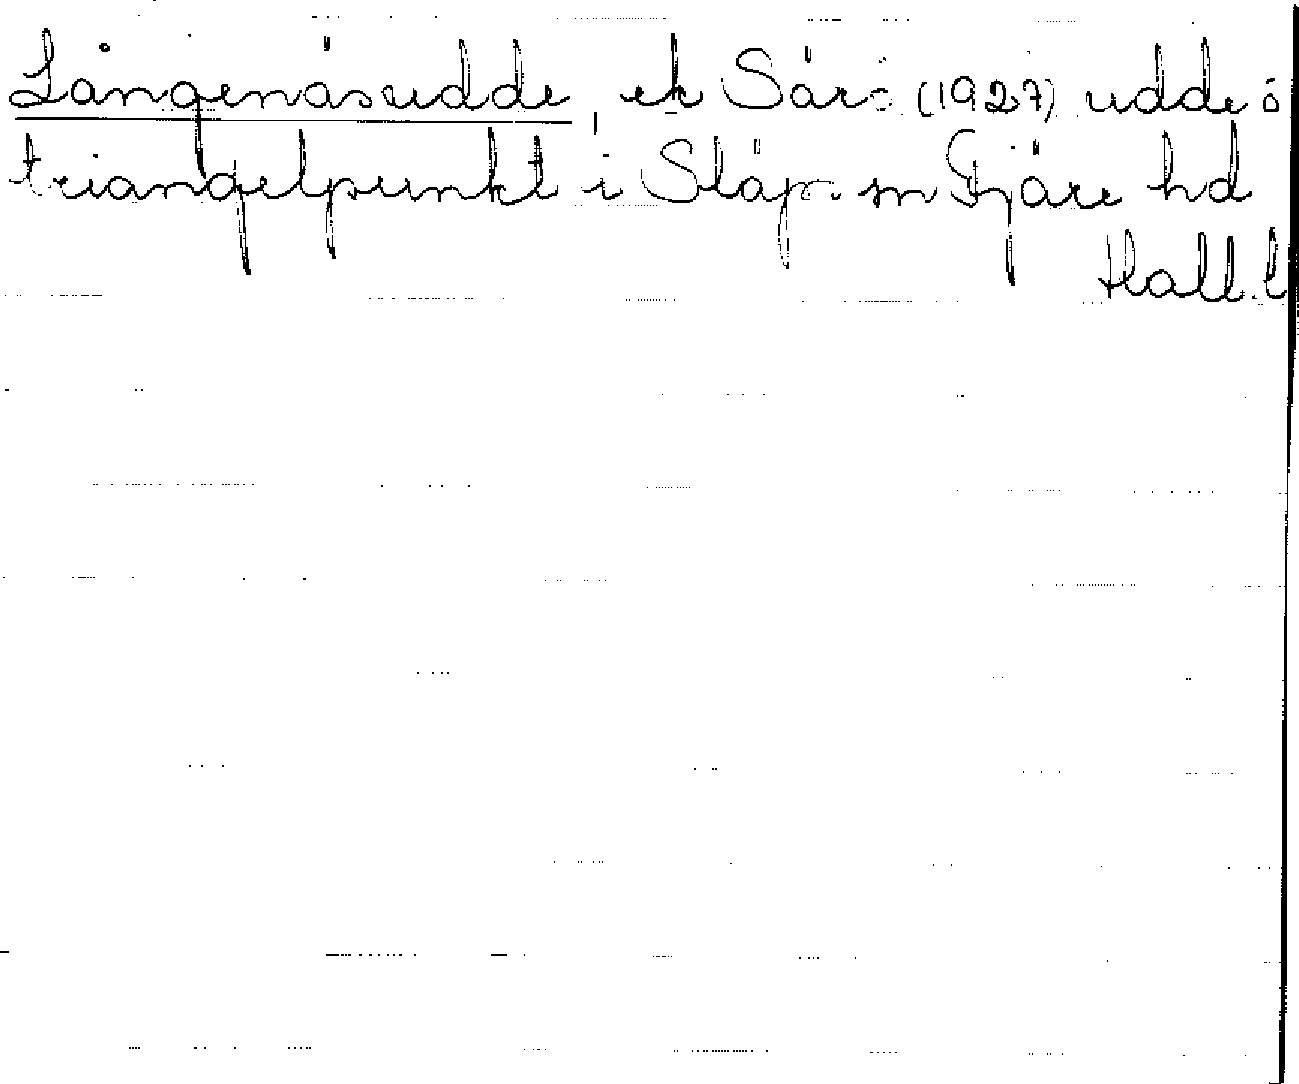 Långenäsudde, ek Särö (1927) udde o
triangelpunkt i Släps sn Fjäre hd
Hall. l